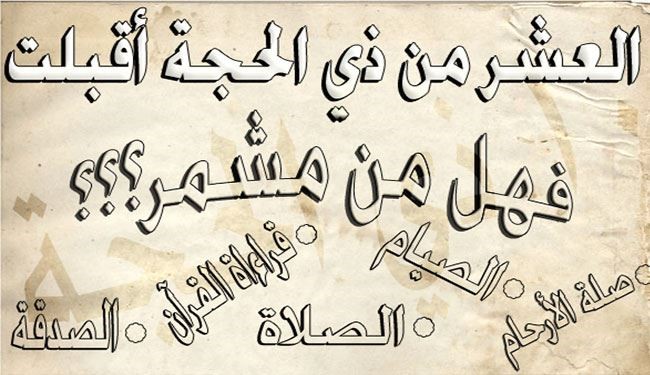 العشر من ذي الحجة أقبلت
فهل من مشمر؟؟؟
صلة الأرحام
الصيام
قراءة القرآن
الصلاة
الصدقة